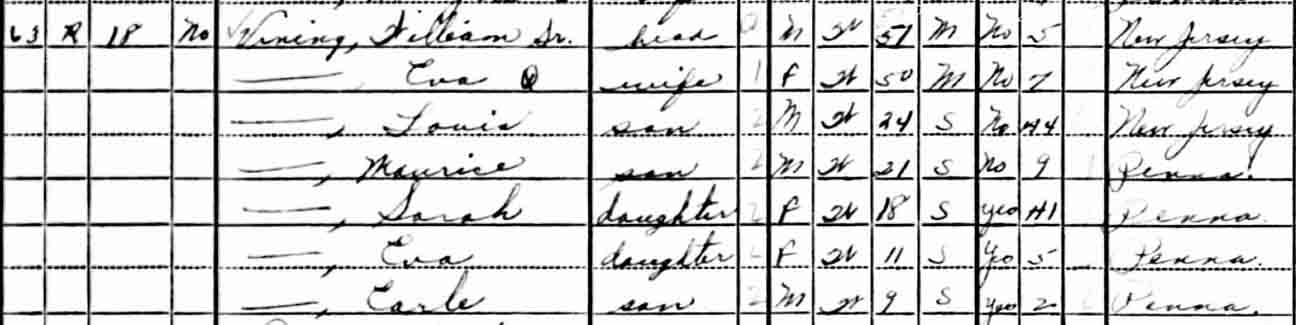 63 R 18 No Vining, William Sr. head 0 M W 51 M No 5 New Jersey
—, Eva wife 1 F W 50 M No 7 New Jersey
—, Louis son 2 M W 24 S No H4 New Jersey
—, Maurice son 2 M W 21 S No 9 Penna.
—, Sarah daughter 2 F W 18 S Yes H1 Penna.
—, Eva daughter F W 11 S Yes 5 Penna.
—, Earle son 2 M W 9 S Yes 2 Penna.